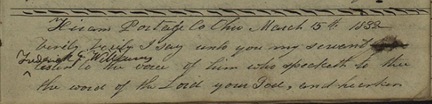 Hiram Portage Co Ohio March 15th 1832
Verily Verily I say unto you my servant
Frederick G Williams
listen to the voice of him who speaketh to thee
the word of the Lord your God, and hearken